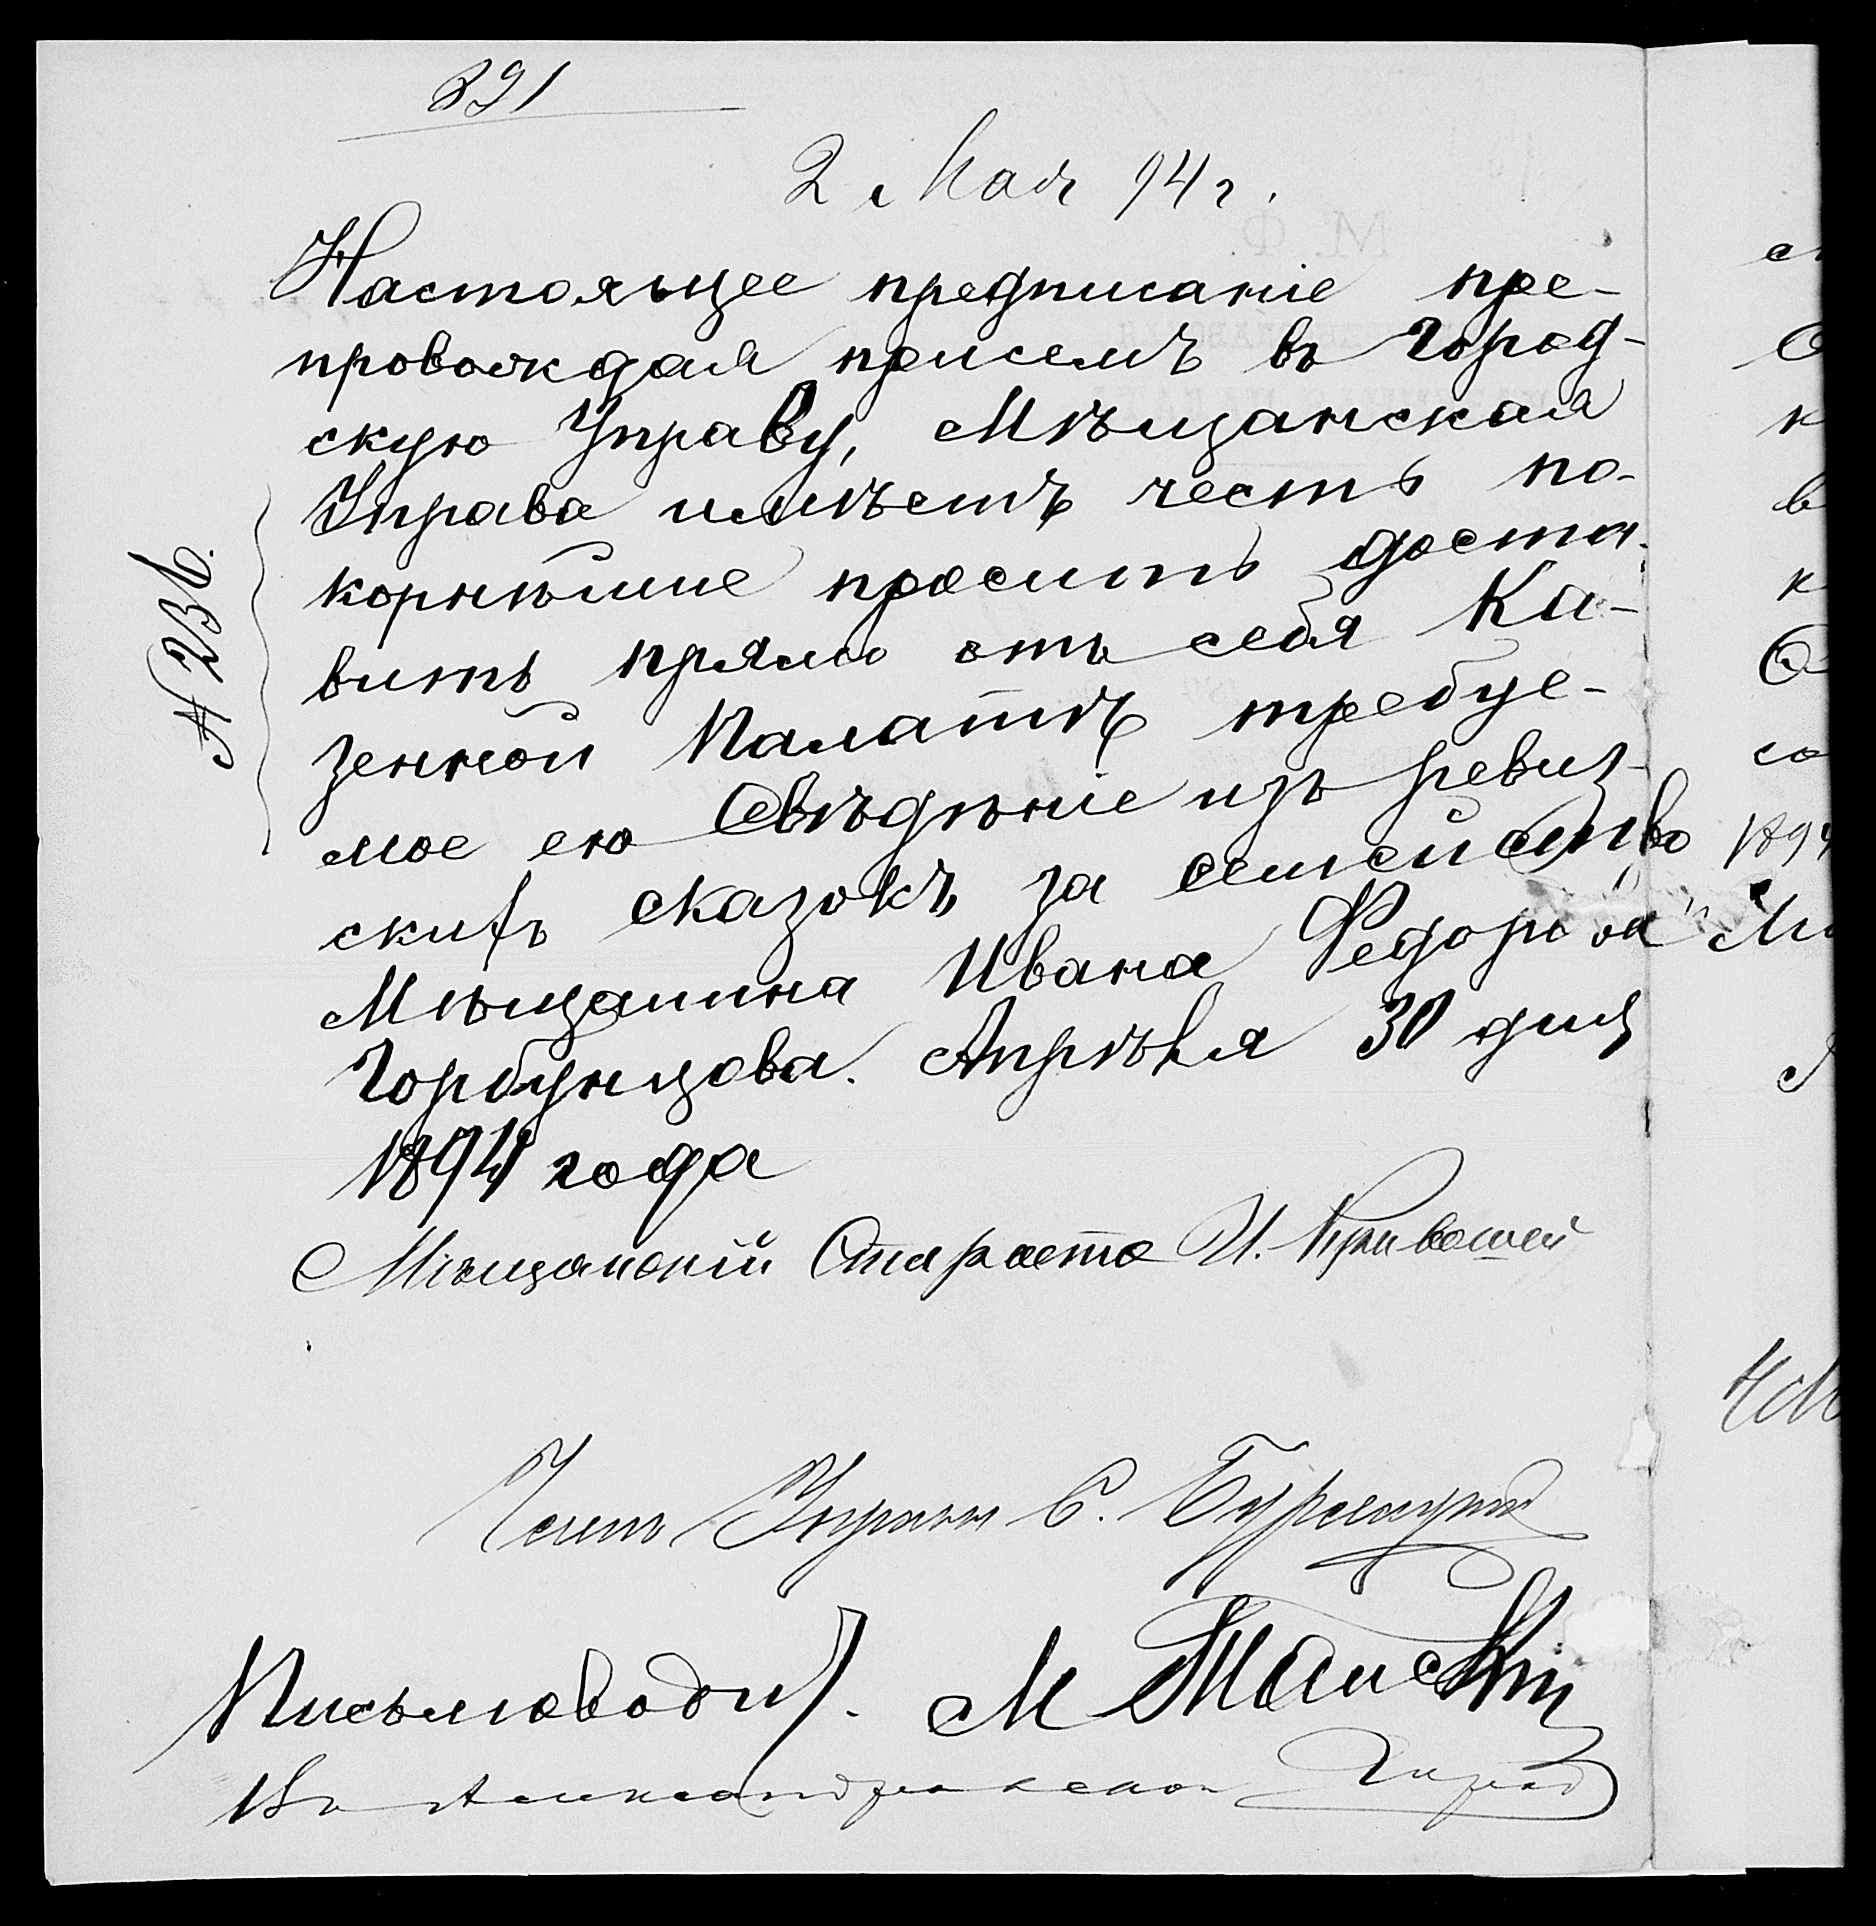 891
2 Мая 94 г.
Настоящее предписаніе пре-
провождая присемъ въ Город-
скую Управу, Мѣщанская
Управа имѣетъ честь по-
корнѣйше просить доста-
вить прямо отъ себя Ка-
зенной Палатѣ требуе-
мое ею Свѣдѣніе изъ ревиз-
скихъ сказокъ за семейство
Мѣщанина Ивана Федорова
Горбунцова. Апрѣля 30 дня
1894 года
№ 236.
Мѣщанскій Староста И. Кривошей
Членъ Управы С.
Письмоводит. М
Въ Александровскую
1894